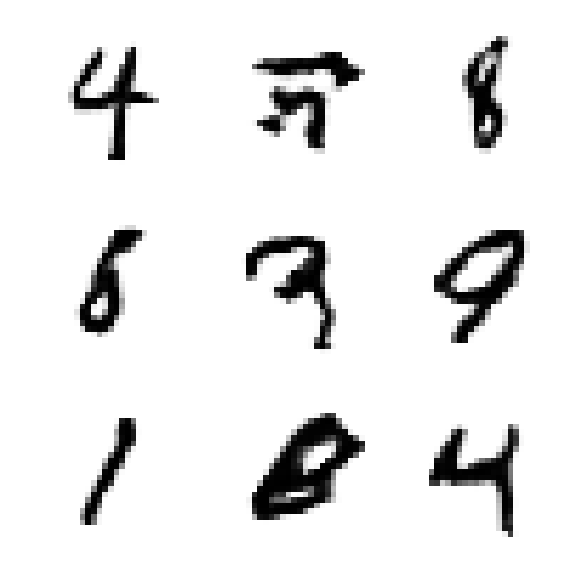 4 8
6 3 9
1 8 4